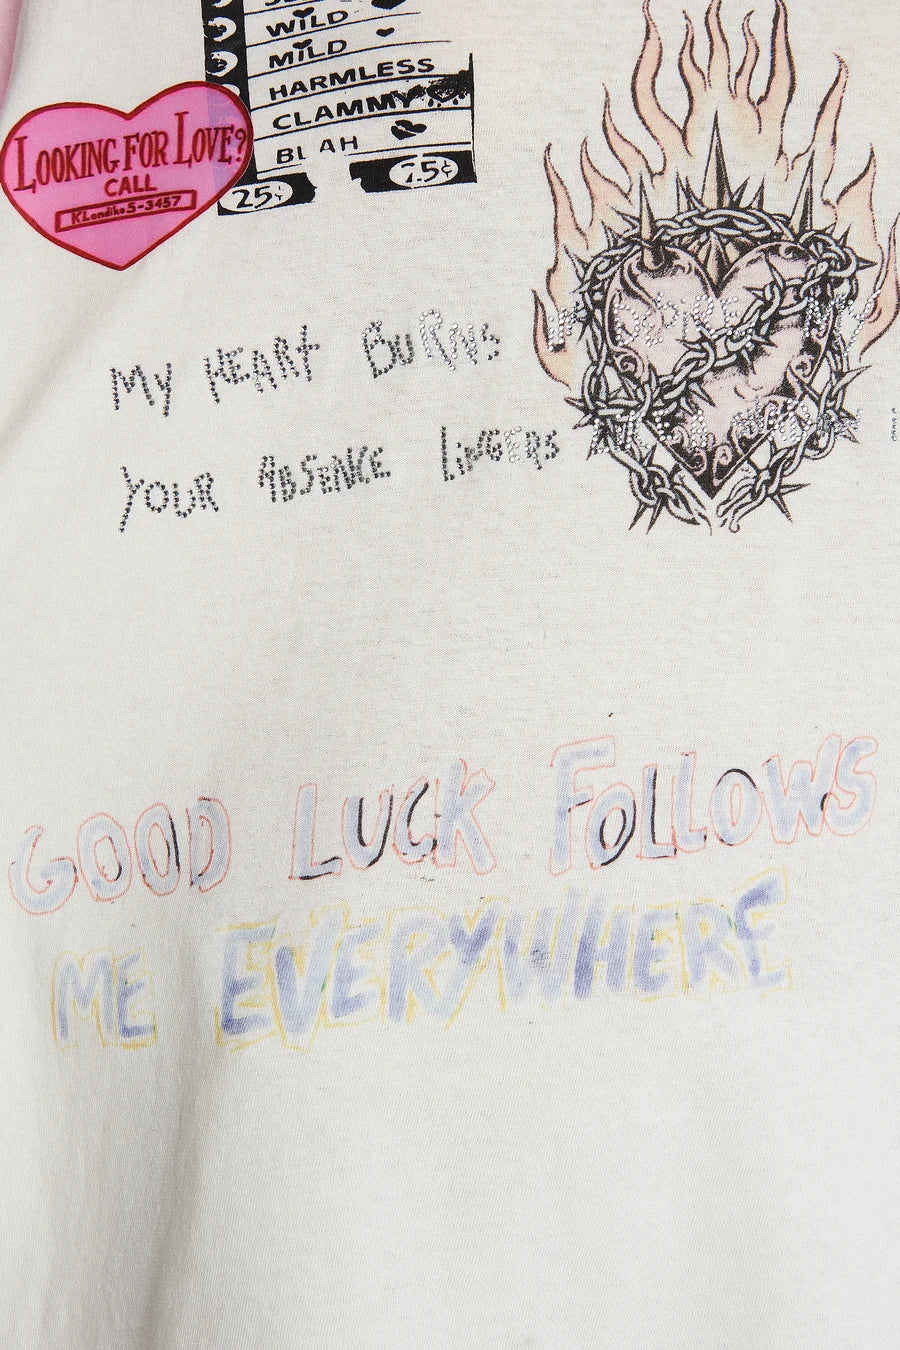 WiLD
MiLD
HARMLESS
CLAMMY
BLAH
25¢
7.5¢
LOOKING FOR LOVE?
CALL
KLondike 5-3457
MY HEART BURNS
YOUR ABSENCE LiNGERS
GOOD LUCK FOLLOWS
ME EVERYWHERE